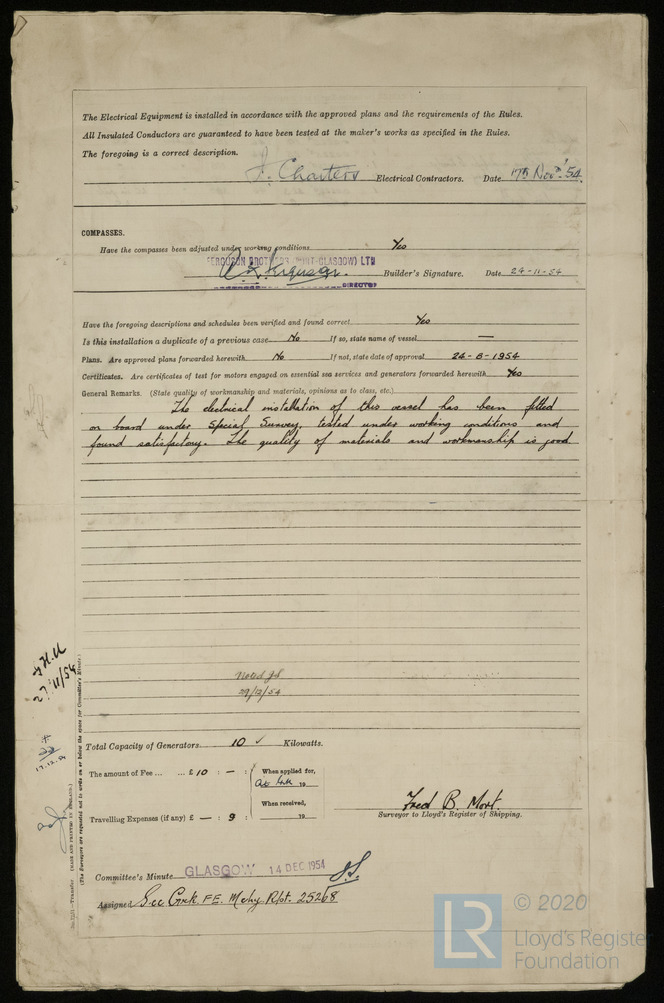 The Electrical Equipment is installed in accordance with the approved plans and the requirements of the Rules.
All Insulated Conductors are guaranteed to have been tested at the maker's works as specified in the Rules.
The foregoing is a correct description.
J. Charters Electrical Contractors. Date 17th Nov.' 54.
COMPASSES.
Have the compasses been adjusted under working conditions Yes
FERGUSON BROTHERS (PORT-GLASGOW) LTD
Ferguson. Builder's Signature. Date 24-11-54
DIRECTOR
Have the foregoing descriptions and schedules been verified and found correct Yes
Is this installation a duplicate of a previous case No If so, state name of vessel —
Plans. Are approved plans forwarded herewith No If not, state date of approval 24-6-1954
Certificates. Are certificates of test for motors engaged on essential sea services and generators forwarded herewith Yes
General Remarks. (State quality of workmanship and materials, opinions as to class, etc.)
The electrical installation of this vessel has been fitted
on board under Special Survey, tested under working conditions and
found satisfactory. The quality of materials and workmanship is good
Noted JS
29/12/54
27/11/54
17.12.54
Total Capacity of Generators 10 ✓ Kilowatts.
The amount of Fee ... ... £ 10 : — : When applied for,
19
When received,
Travelling Expenses (if any) £ — : 9 : 19
Fred B. Mort.
Surveyor to Lloyd's Register of Shipping.
Committee's Minute GLASGOW 14 DEC 1954
Assigned See F.E. Mchy. Rpt. 25268
(MADE AND PRINTED IN ENGLAND.)
(The Surveyors are requested not to write on or below the space for Committee's Minute.)
LR © 2020
Lloyd's Register
Foundation